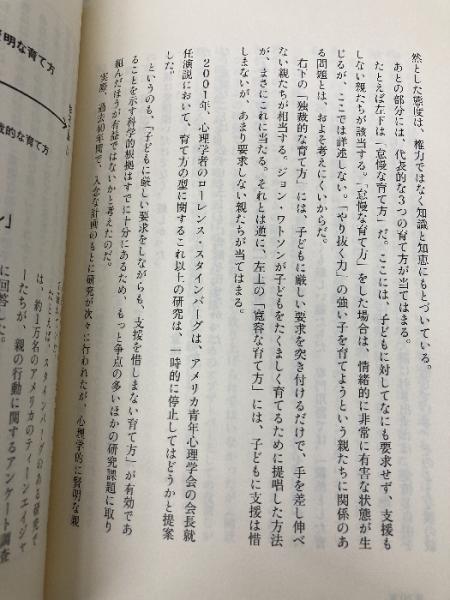 然とした態度は、権力ではなく知識と知恵にもとづいている。
あとの部分には、代表的な3つの育て方が当てはまる。
たとえば左下は「怠慢な育て方」だ。ここには、子どもに対してなにも要求せず、支援も
しない親たちが該当する。「怠慢な育て方」をした場合は、情緒的に非常に有害な状態が生
じるが、ここでは詳述しない。「やり抜く力」の強い子を育てようという親たちに関係のあ
る問題とは、およそ考えにくいからだ。
右下の「独裁的な育て方」には、子どもに厳しい要求を突き付けるだけで、手を差し伸べ
ない親たちが相当する。ジョン・ワトソンが子どもをたくましく育てるために提唱した方法
が、まさにこれに当たる。それとは逆に、左上の「寛容な育て方」には、子どもに支援は惜
しまないが、あまり要求しない親たちが当てはまる。
2001年、心理学者のローレンス・スタインバーグは、アメリカ青年心理学会の会長就
任演説において、育て方の型に関するこれ以上の研究は、一時的に停止してはどうかと提案
した。
というのも、「子どもに厳しい要求をしながらも、支援を惜しまない育て方」が有効であ
ることを示す科学的根拠はすでに十分にあるため、もっと争点の多いほかの研究課題に取り
組んだほうが有益ではないかと考えたのだ。
実際、過去40年間で、入念な計画のもとに研究が次々に行われたが、心理学的に賢明な親
明な育て方
裁的な育て方
たとえば、スタインバーグのある研究で
は、約1万名のアメリカのティーンエイジャ
ーたちが、親の行動に関するアンケート調査
に回答した。